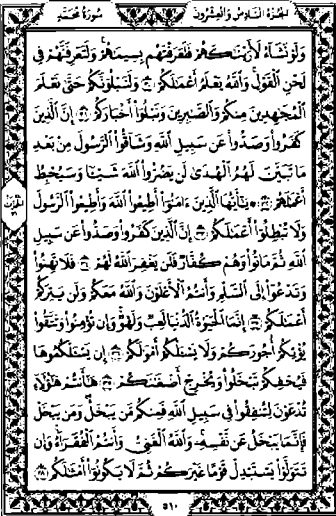 الجزء السادس والعشرون سورة محمد
ولو نشاء لأريناكهم فلعرفتهم بسيماهم ولتعرفنهم في
لحن القول والله يعلم أعمالكم ٣٠ ولنبلونكم حتى نعلم
المجاهدين منكم والصابرين ونبلوا أخباركم ٣١ إن الذين
كفروا وصدوا عن سبيل الله وشاقوا الرسول من بعد
ما تبين لهم الهدى لن يضروا الله شيئا وسيحبط
أعمالهم ٣٢ يا أيها الذين ءامنوا أطيعوا الله وأطيعوا الرسول
ولا تبطلوا أعمالكم ٣٣ إن الذين كفروا وصدوا عن سبيل
الله ثم ماتوا وهم كفار فلن يغفر الله لهم ٣٤ فلا تهنوا
وتدعوا إلى السلم وأنتم الأعلون والله معكم ولن يتركم
أعمالكم ٣٥ إنما الحيوة الدنيا لعب ولهو وإن تؤمنوا وتتقوا
يؤتكم أجوركم ولا يسئلكم أموالكم ٣٦ إن يسئلكموها
فيحفكم تبخلوا ويخرج أضغانكم ٣٧ هاأنتم هؤلاء
تدعون لتنفقوا في سبيل الله فمنكم من يبخل ومن يبخل
فإنما يبخل عن نفسه والله الغني وأنتم الفقراء وإن
تتولوا يستبدل قوما غيركم ثم لا يكونوا أمثالكم ٣٨
٥١٠